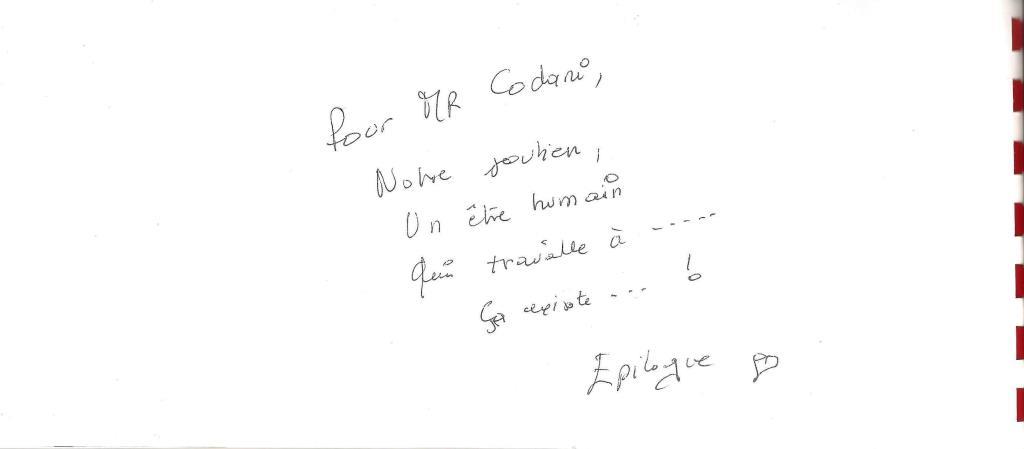 Pour MR Codani,
Notre soutien,
Un être humain
Qui travaille à -----
ça existe --- !
Epilogue